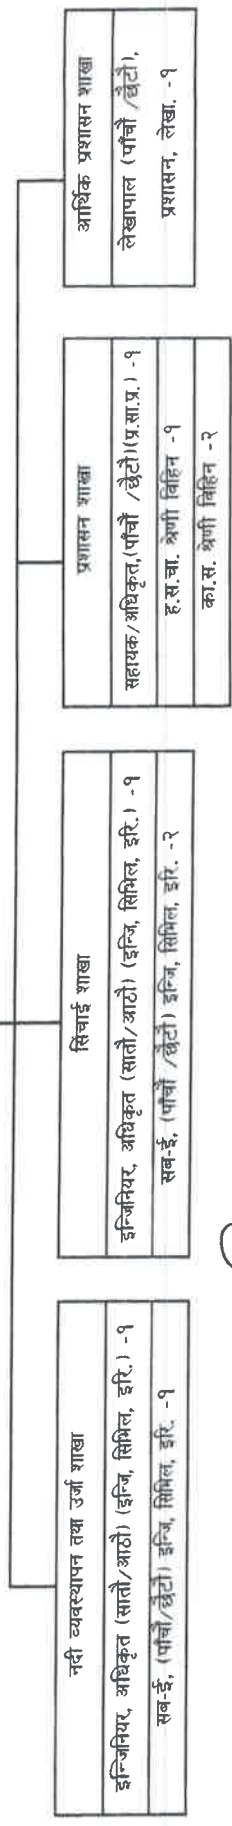 नदी व्यवस्थापन तथा उर्जा शाखा
इन्जिनियर, अधिकृत (सातौं/आठौं) (इन्जि, सिभिल, इरि.) -१
सब-ई, (पाँचौं/छैटौं) इन्जि, सिभिल, इरि. -१
सिंचाई शाखा
इन्जिनियर, अधिकृत (सातौं/आठौं) (इन्जि, सिभिल, इरि.) -१
सब-ई, (पाँचौं /छैटौं) इन्जि, सिभिल, इरि. -२
प्रशासन शाखा
सहायक/अधिकृत,(पाँचौं /छैटौं)(प्र.सा.प्र.) -१
ह.स.चा. श्रेणी विहिन -१
का.स. श्रेणी विहिन -२
आर्थिक प्रशासन शाखा
लेखापाल (पाँचौं /छैटौं),
प्रशासन, लेखा. -१